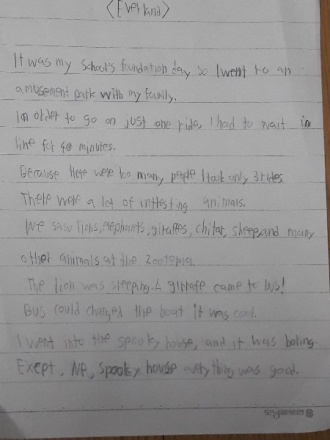 <Everland>
It was my school's foundation day so I went to an
amusement park with my family.
in order to go on just one ride, I had to wait in
line for 40 minutes.
Because there were too many people I took only 3 rides
There were a lot of intresting animals.
We saw lions, elephants, giraffes, chitar, sheep and many
other animals at the zootopia.
The lion was sleeping. A giraffe came to bus!
Bus could changed the boat it was cool.
I went into the spooky house, and it was boling.
Exept, the, spooky house evrything was good.